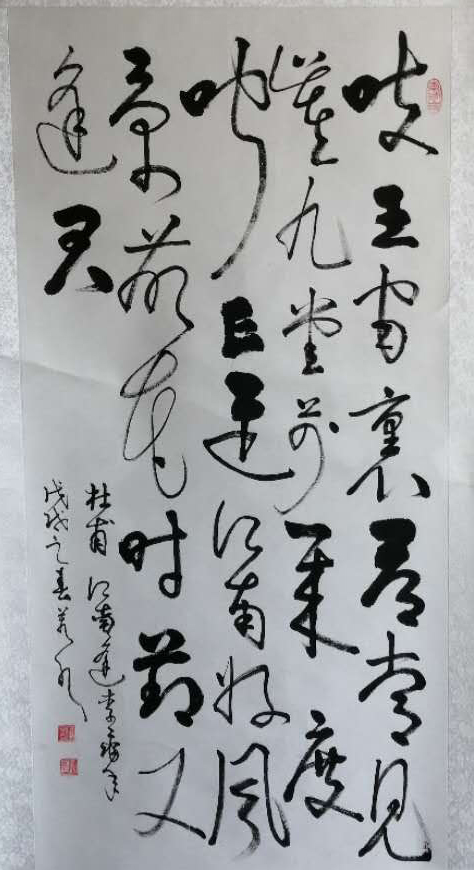 岐王宅裏尋常見
崔九堂前幾度
聞正是江南好風
景落花時節又
逢君
杜甫 江南逢李龜年
戊戌之春